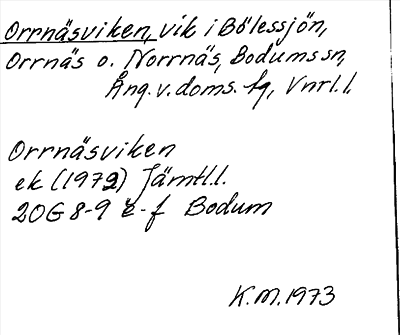 Orrnäsviken, vik i Bölessjön,
Orrnäs o. Norrnäs, Bodums sn,
Ång. v. doms. fg, Vnrl. l.
Orrnäsviken
ek (1972) Jämtl.l.
20G 8-9 e-f Bodum
K.M. 1973